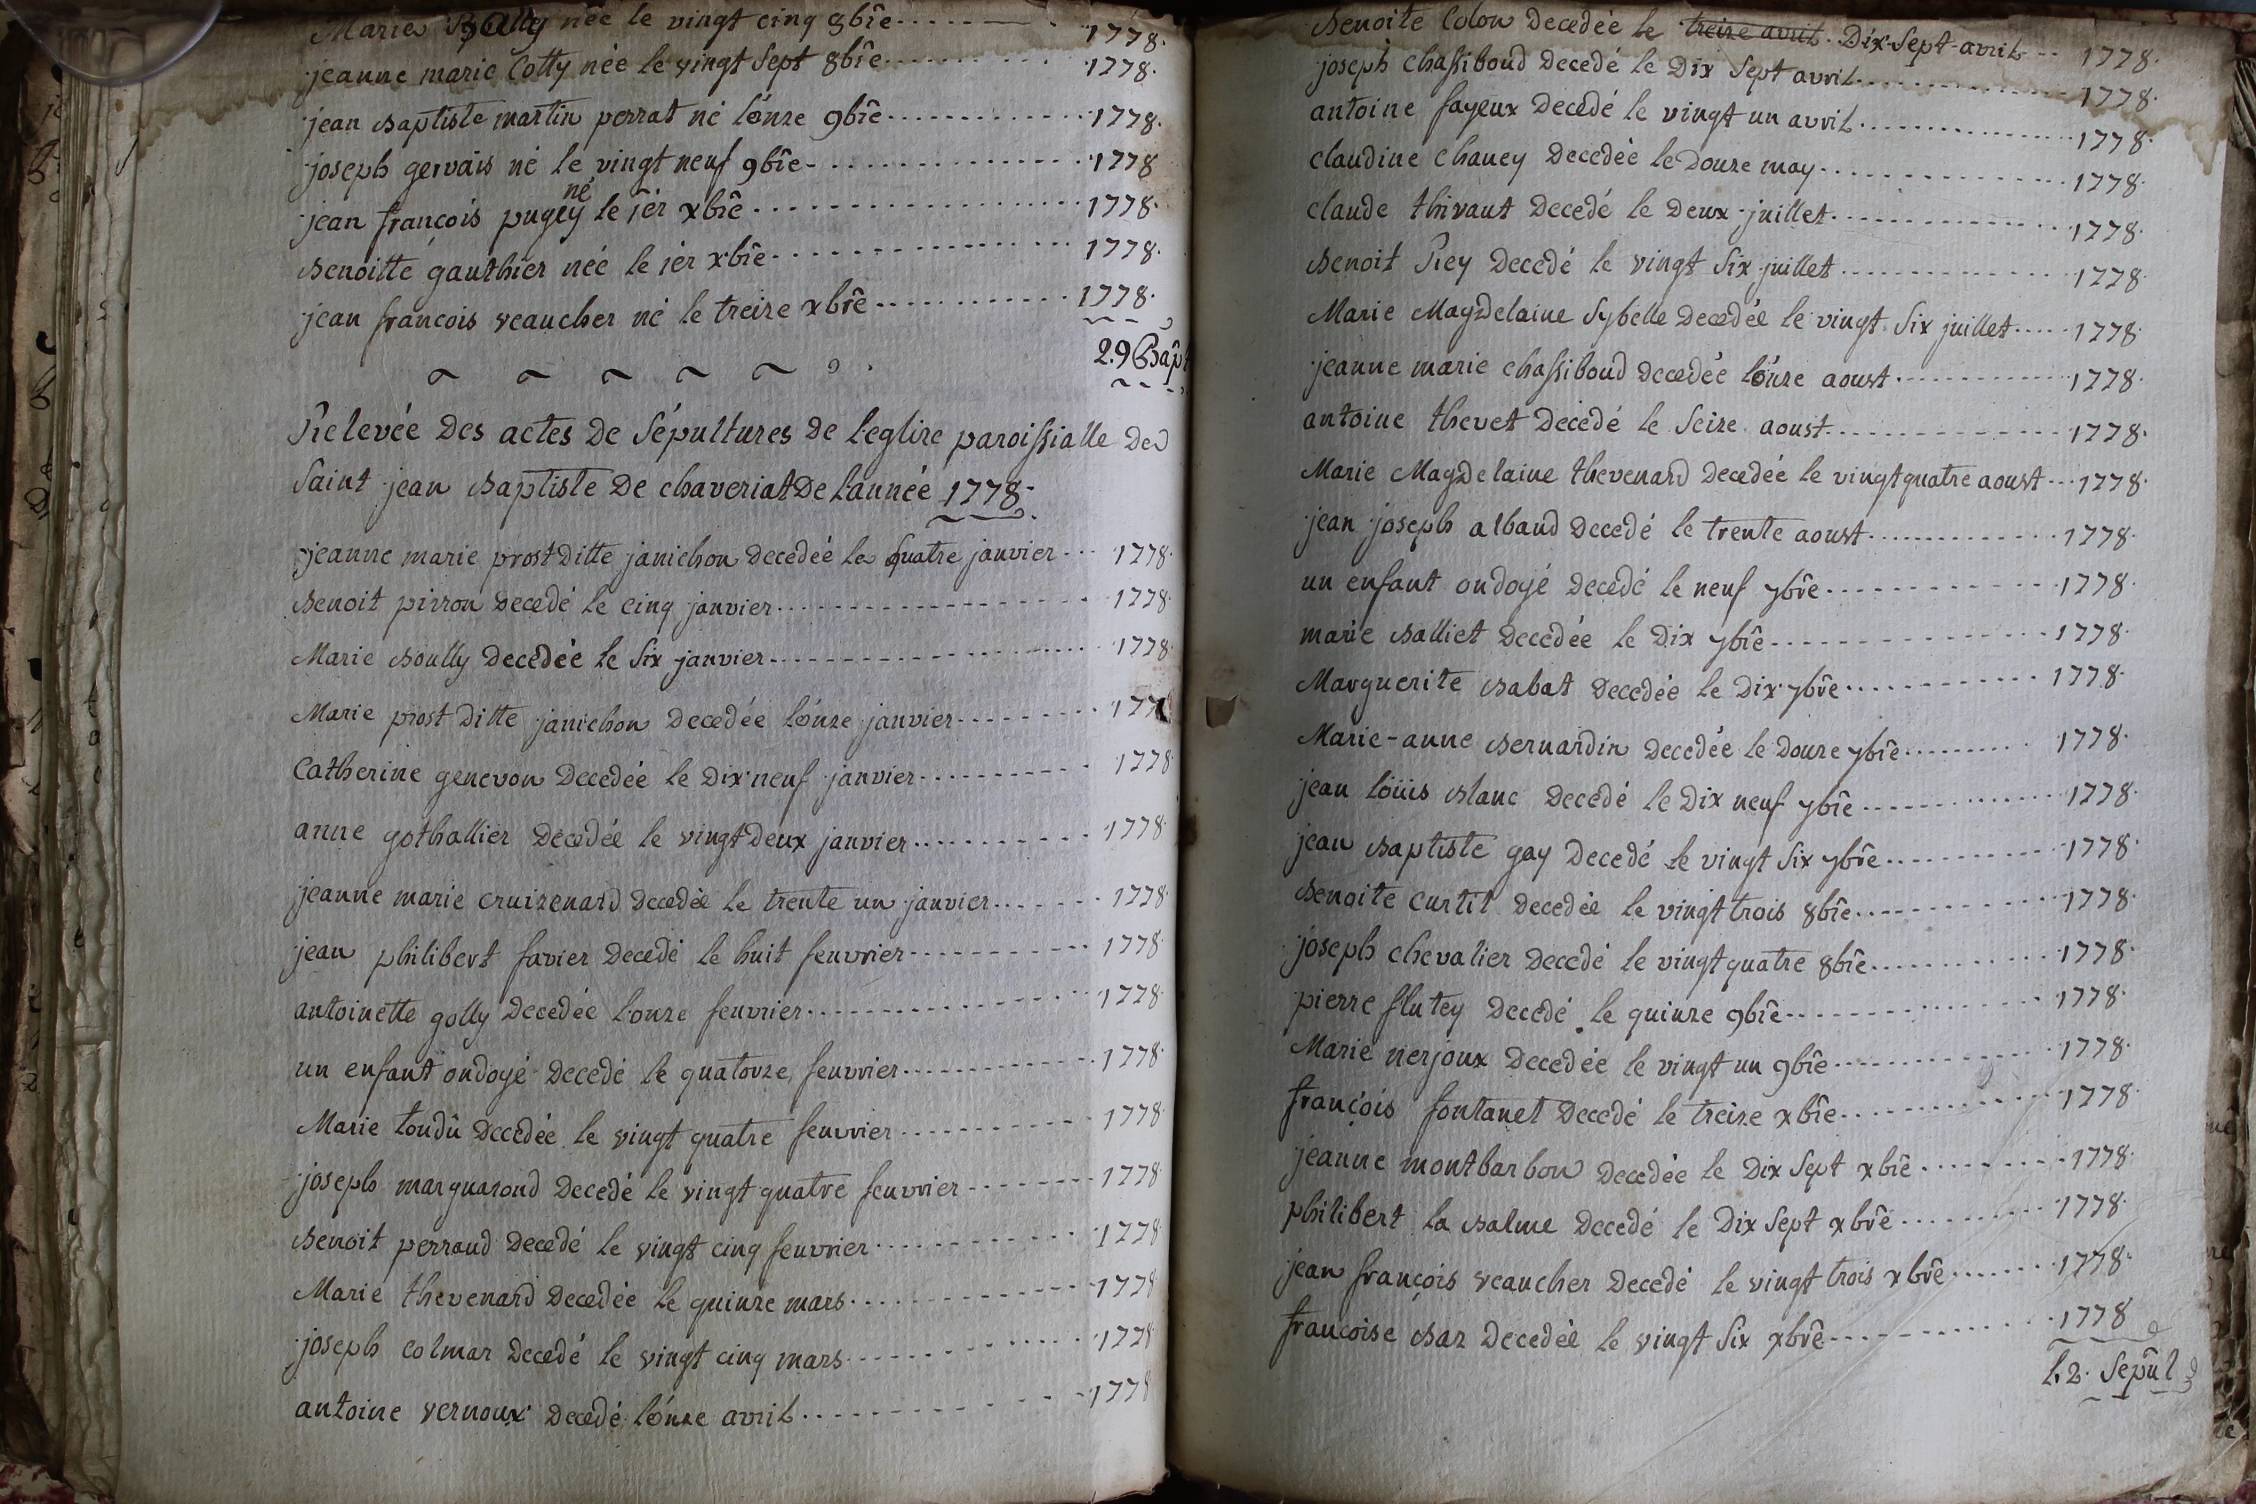 Marie née le vingt cinq 8bre 1778.
jeanne marie Cotty née le vingt Sept 8bre 1778.
jean Baptiste martin perrat né l'onze 9bre 1778.
joseph gervais né le vingt neuf 9bre 1778
jean françois pugey né le ier xbre 1778.
Benoitte gauthier née le ier xbre 1778.
jean francois veaucher né le treize xbre 1778.
29 Bapt
Relevée des actes de Sépultures de l'eglize paroissialle de
Saint jean Baptiste De chaveriat De L'année 1778.
jeanne marie prost Ditte janichon Decedeé le quatre janvier 1778.
Benoit pirron Decedé le cinq janvier 1778.
Marie Boully Decedée le Six janvier 1778
Marie prost Ditte janichon Decedée l'onze janvier 177
Catherine genevon Decedée le Dix neuf janvier 1778
anne gothallier Decedée le vingt Deux janvier 1778.
jeanne marie cruizenard Decedée le trente un janvier 1778.
jean philibert favier Decedé le huit feuvrier 1778.
antoinette golly Decedée l'onze feuvrier 1778.
un enfant ondoyé Decedé le quatorze feuvrier 1778.
Marie tondû Decedée le vingt quatre feuvrier 1778
joseph marguarond Decedé le vingt quatre feuvrier 1778
Benoit perraud Decedé le vingt cinq feuvrier 1778
Marie thevenard Decedée le quinze mars 1778
joseph colmar Decedé le vingt cinq mars 1778
antoine vernoux Decedé l'onze avril 1778
Benoite Colon Decedée le treize avril Dix-Sept-avril 1778.
joseph chassiboud Decedé le Dix Sept avril 1778.
antoine fayeux Decedé le vingt un avril 1778.
claudine chaney Decedée le Douze may 1778.
claude thivaut Decedé le Deux juillet 1778.
Benoit Rey Decedé le vingt Six juillet 1778
Marie Magdelaine Sybelle Decedée le vingt Six juillet 1778.
jeanne marie chassiboud Decedée l'onze aoust 1778.
antoine thevet Decedé le Seize aoust 1778.
Marie Magdelaine thevenard Decedée le vingt quatre aoust 1778.
jean joseph alband Decedé le trente aoust 1778.
un enfant ondoyé Decedé le neuf 7bre 1778.
marie Balliet Decedée le Dix 7bre 1778.
Marguerite Babat Decedée le Dix 7bre 1778.
Marie-anne Bernardin Decedée le Douze 7bre 1778.
jean loüis Blanc Decedé le Dix neuf 7bre 1778.
jean Baptiste gay Decedé le vingt Six 7bre 1778.
Benoite Curtil Decedée le vingt trois 8bre 1778.
joseph chevalier Decedé le vingt quatre 8bre 1778.
pierre flutey Decedé le quinze 9bre 1778.
Marie nerjoux Decedée le vingt un 9bre 1778.
françois fontanet Decedé le treize xbre 1778.
jeanne montbarbon Decedée le Dix Sept xbre 1778.
philibert la Balme Decedé le Dix Sept xbre 1778.
jean françois veaucher Decedé le vingt trois xbre 1778.
francoise Baz Decedée le vingt Six xbre 1778
Sepul